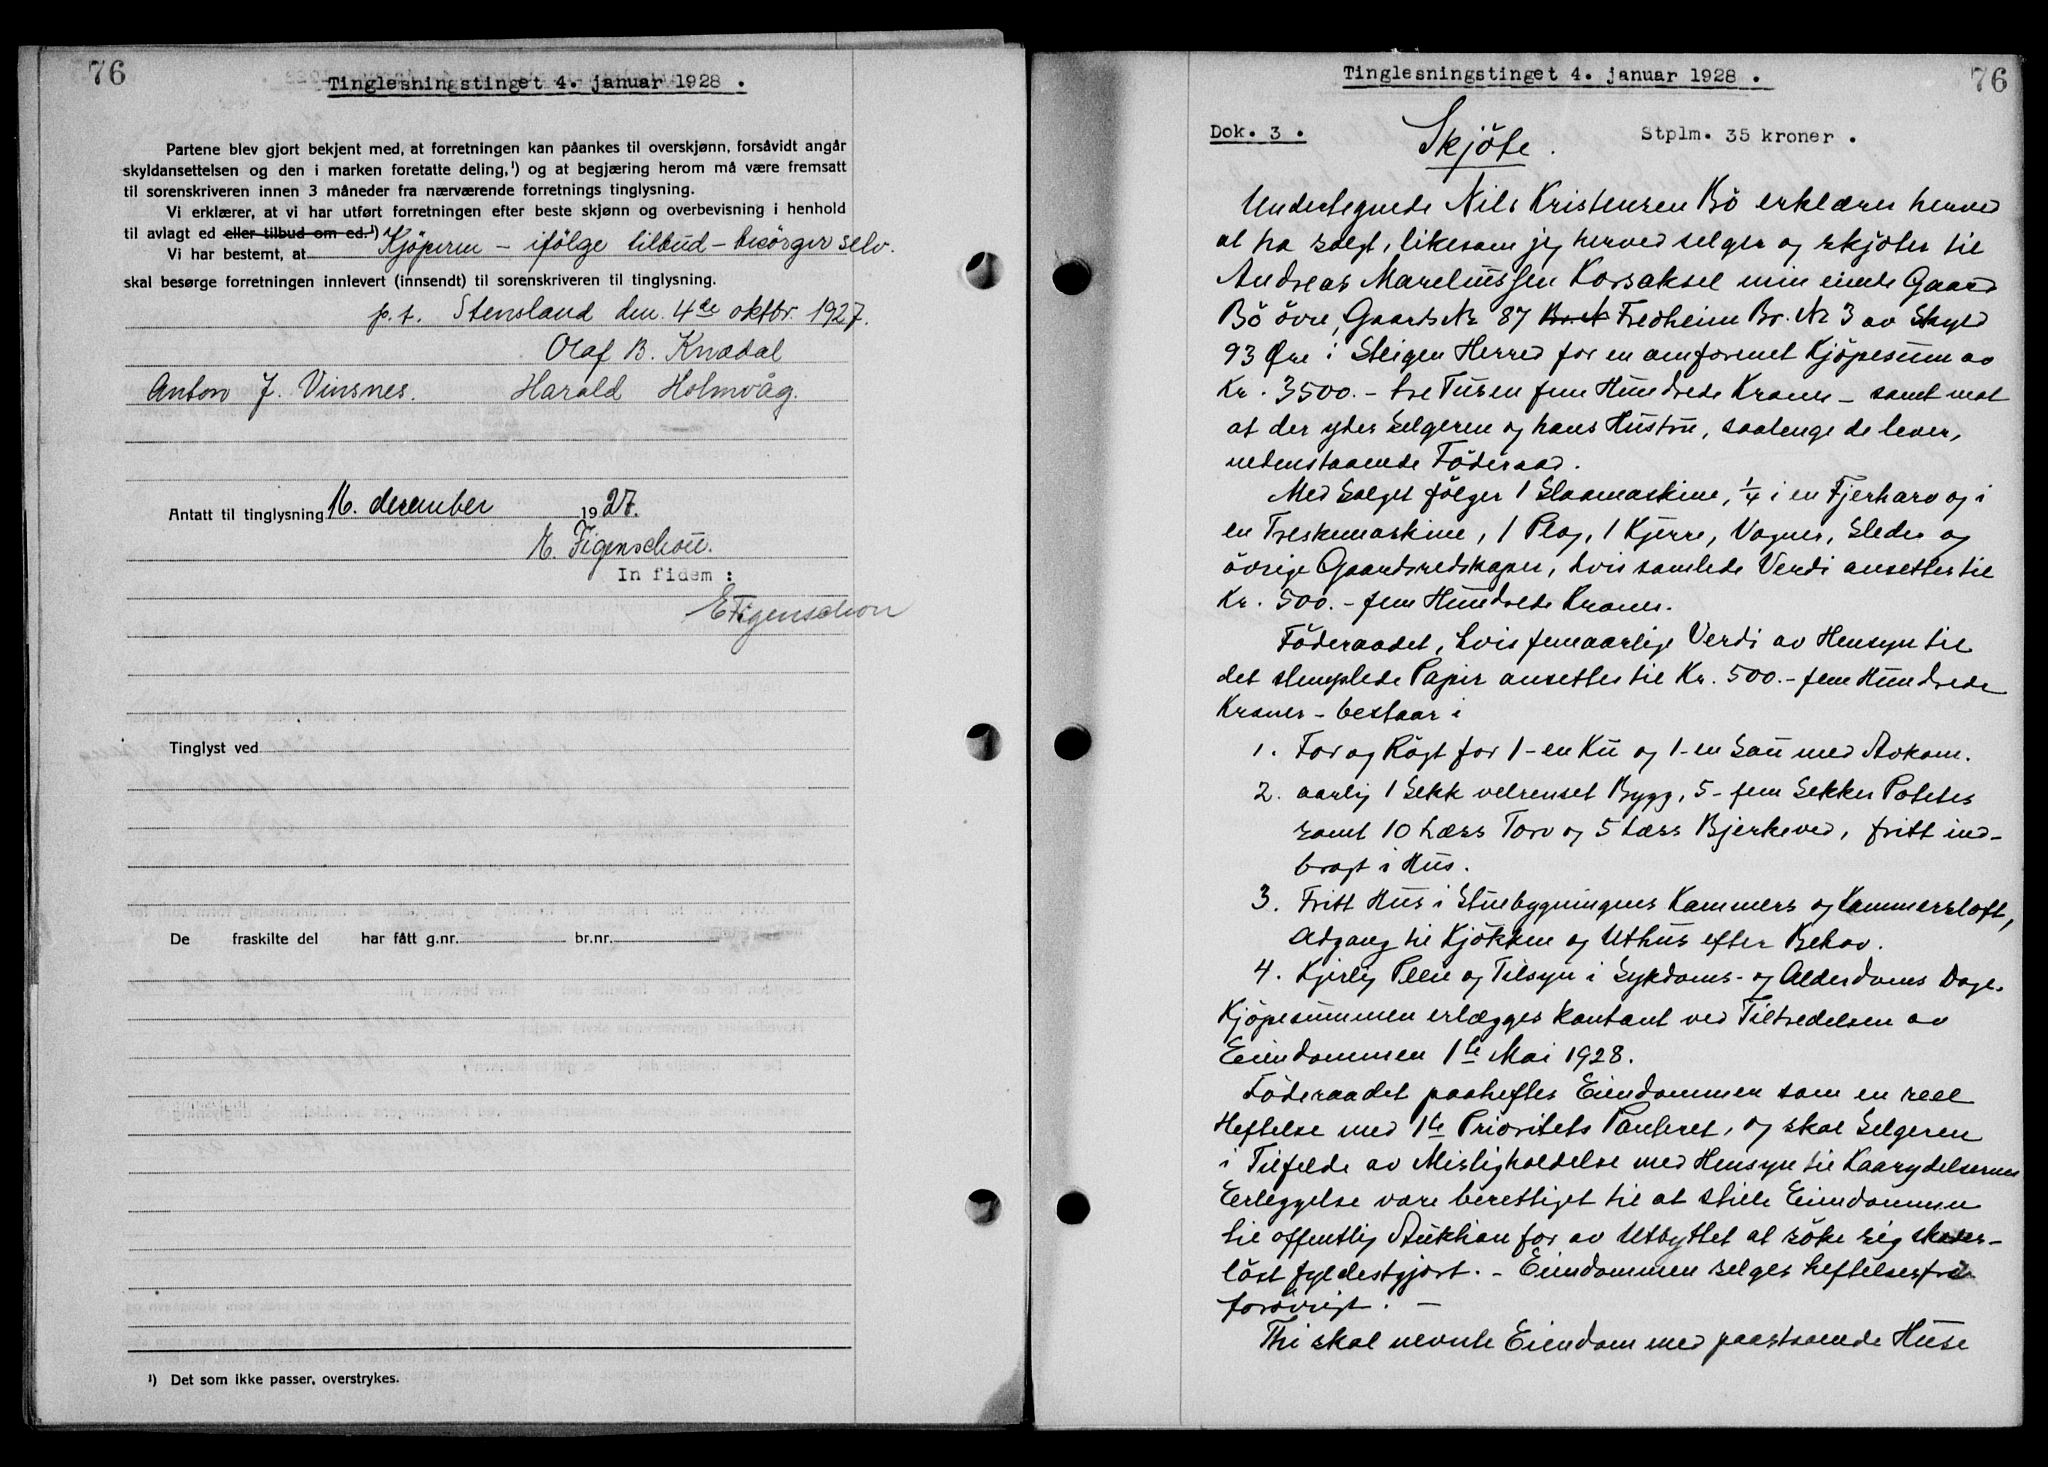 76
Tinglesningstinget 4. januar 1928 .
Partene blev gjort bekjent med, at forretningen kan påankes til overskjønn, forsåvidt angår
skyldansettelsen og den i marken foretatte deling,¹) og at begjæring herom må være fremsatt
til sorenskriveren innen 3 måneder fra nærværende forretnings tinglysning.
Vi erklærer, at vi har utført forretningen efter beste skjønn og overbevisning i henhold
til avlagt ed eller tilbud om ed.¹)
Vi har bestemt, at Kjöperen – ifölge tilbud – besörger selv.
skal besørge forretningen innlevert (innsendt) til sorenskriveren til tinglysning.
p.t. Stensland den 4de oktbr. 1927.
Olaf B. Knædal
Anton J. Vinsnes. Harald Holmvåg.
Antatt til tinglysning 16. desember 1927.
E. Figenschou.
In fidem :
E Figenschou
Tinglyst ved
De fraskilte del har fått g.nr. br.nr.
¹) Det som ikke passer, overstrykes.
Tinglesningstinget 4. januar 1928 .
76
Dok. 3 . Skjöte . Stplm. 35 kroner .
Undertegnede Nils Kristensen Bö erklærer herved
at ha solgt, likesom jeg herved selger og skjöter til
Andreas Mareliussen Korsaksel min eiende Gaard
Bö övre, Gaards Nr 87 Br. N Fredheim Br. Nr 3 av Skyld
93 Øre i Steigen Herred for en omforenet Kjöpesum av
Kr. 3500.- tre Tusen fem Hundrede Kroner – samt mot
at der ydes Selgeren og hans Hustru, saalenge de lever,
nedenstaaende Föderaad.
Med Salget fölger 1 Slaamaskine, 1/4 i en Fjerharv og i
en Treskemaskine, 1 Plog, 1 Kjerre, Vogner, Sleder og
övrige Gaardsredskaper, hvis samlede Verdi ansettes til
Kr. 500.- fem Hundrede Kroner.
Föderaadet, hvis femaarlige Verdi av Hensyn til
det stemplede Papir ansettes til Kr. 500.- fem Hundrede
Kroner – bestaar i
1. For og Rögt for 1- en Ku og 1- en Sau med Avkom.
2. aarlig 1 Sekk velrenset Bygg, 5- fem Sekker Poteter
samt 10 Læss Torv og 5 Læss Bjerkeved, fritt ind-
bragt i Hus.
3. Fritt Hus i Stuebygningens Kammers og Kammersloft,
Adgang til Kjökken og Uthus efter Behov.
4. Kjerlig Pleie og Tilsyn i Sykdoms- og Alderdoms Dage.
Kjöpesummen erlægges kontant ved Tiltredelsen av
Eiendommen 1ste Mai 1928.
Föderaadet paaheftes Eiendommen som en reel
Heftelse med 1ste Prioritets Panteret, og skal Selgeren
i Tilfelde av Misligholdelse med Hensyn til Kaarydelsernes
Erleggelse være berettiget til at stille Eiendommen
til offentlig Auktion for av Utbyttet at söke sig skades-
löst fyldestgjort. – Eiendommen selges heftelsesfri
forövrigt. –
Thi skal nevnte Eiendom med paastaaende Huse